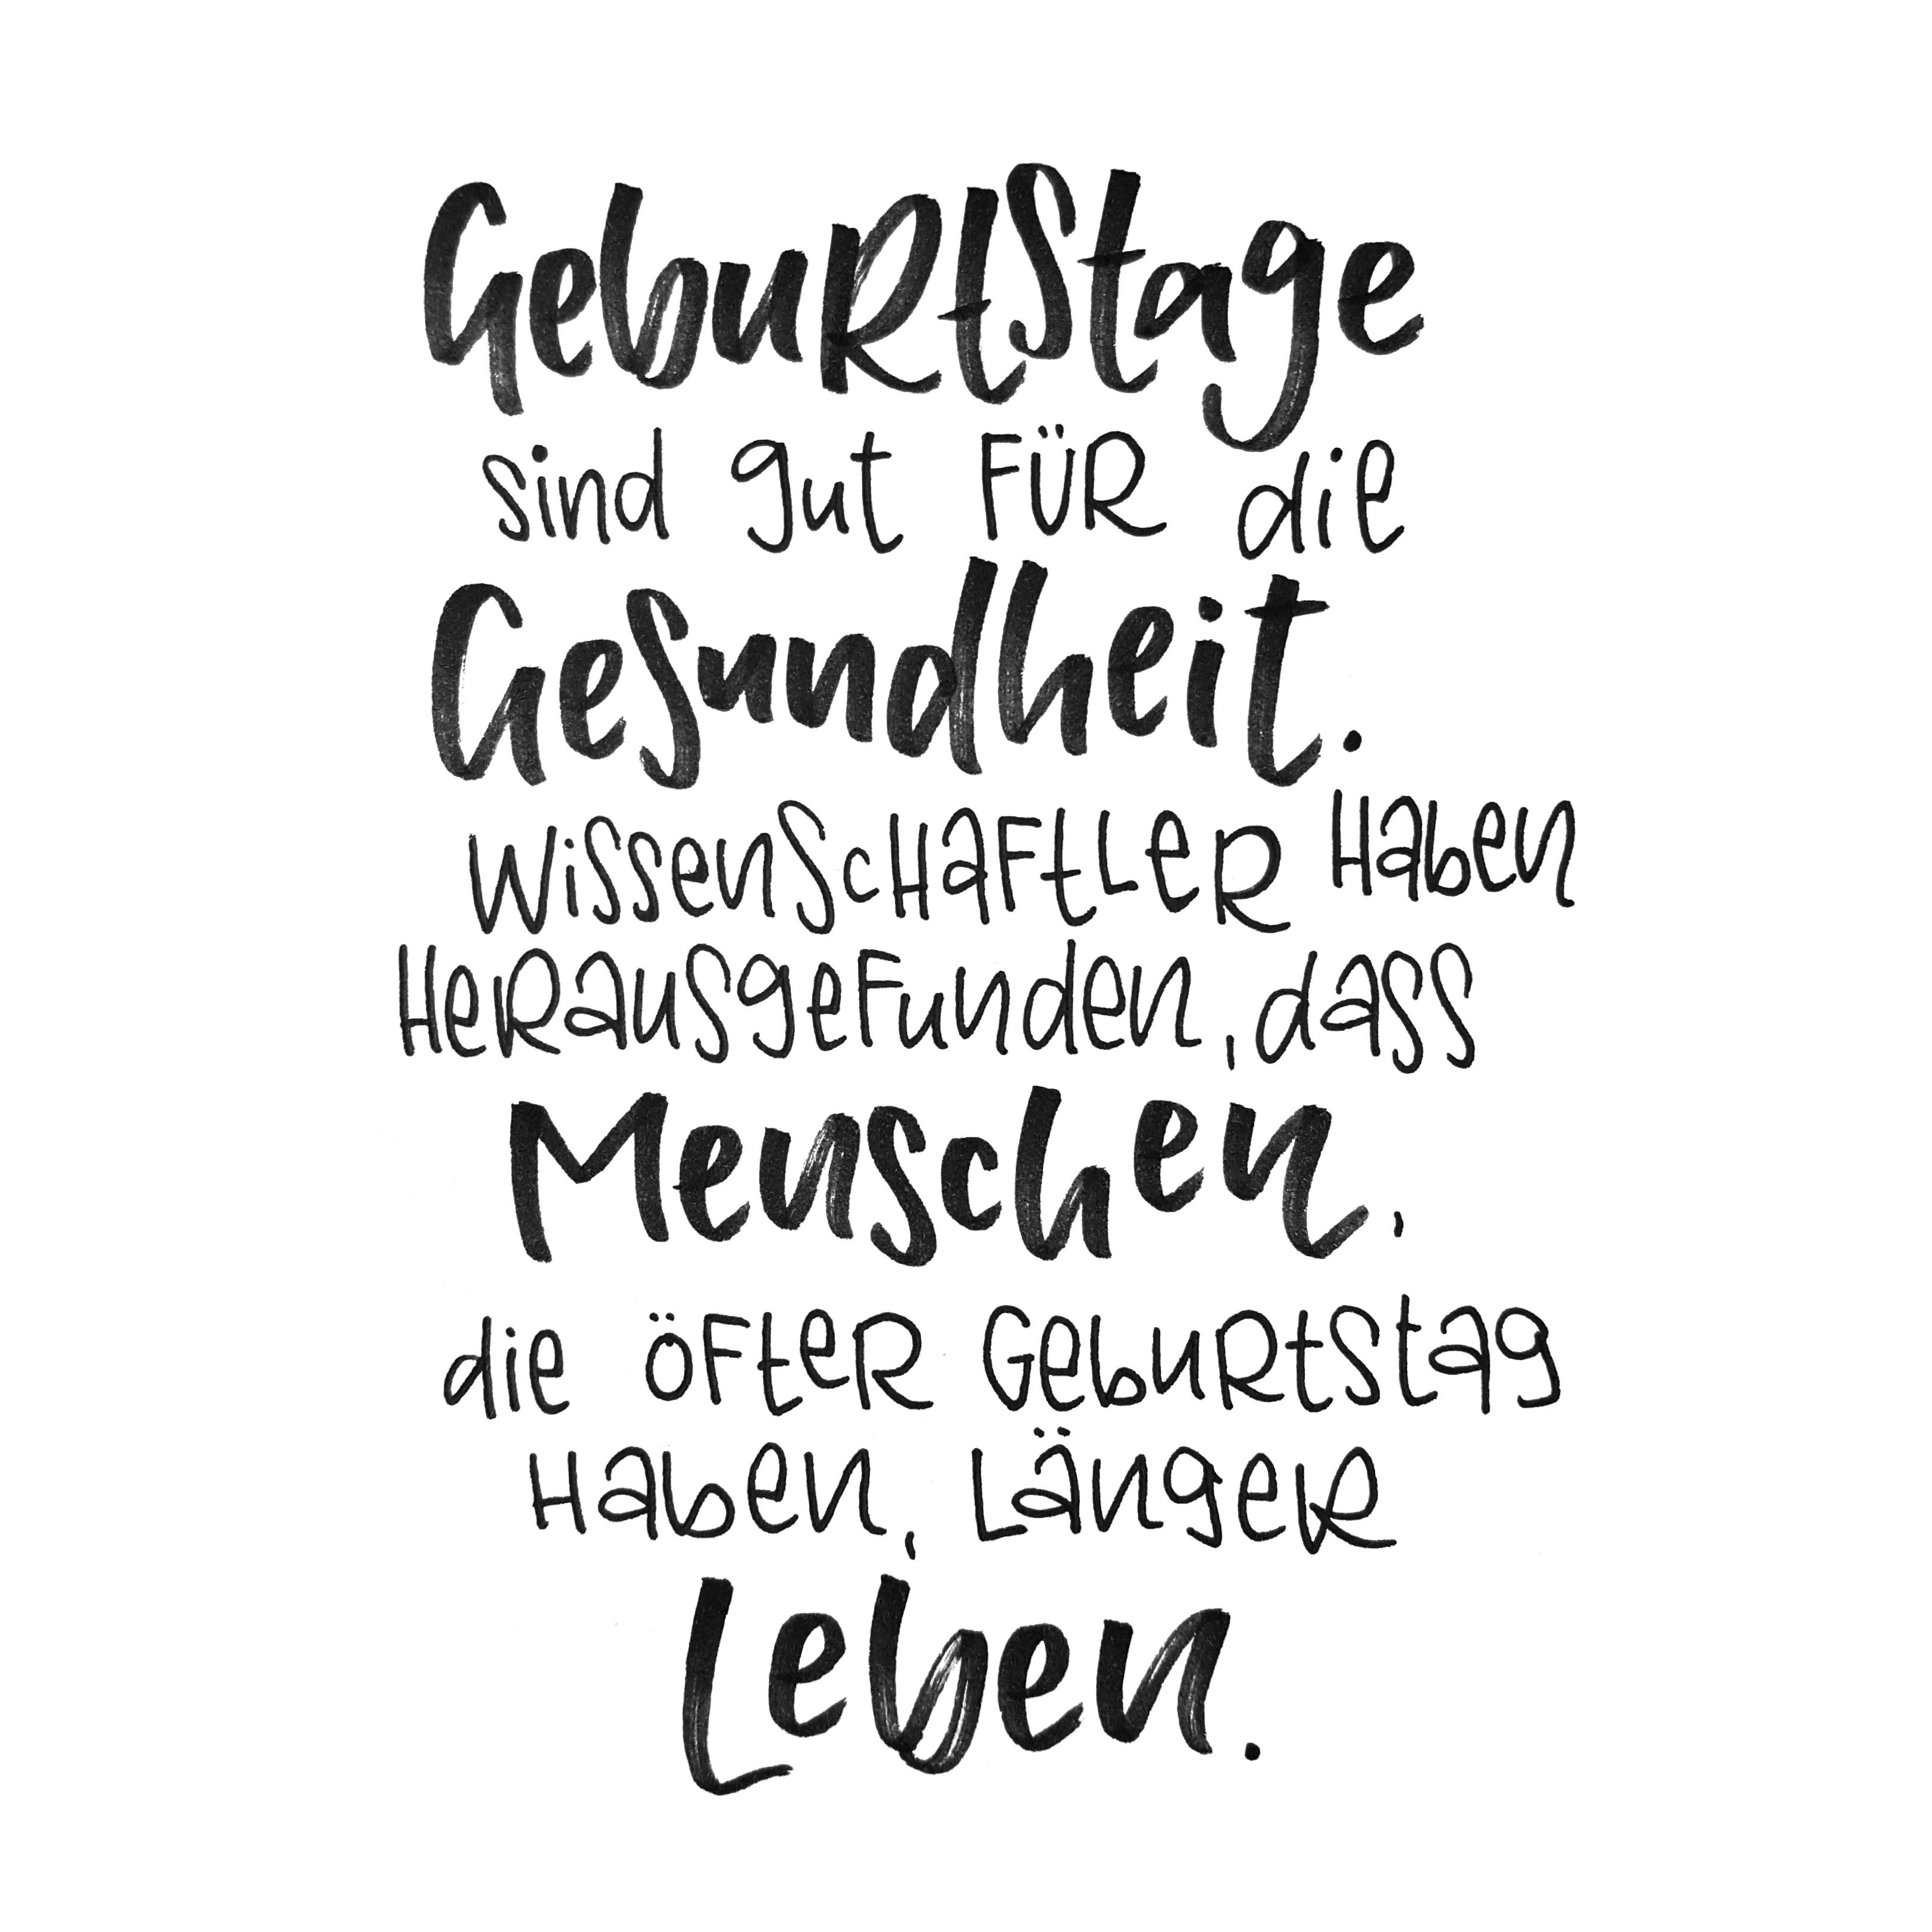 Geburtstage
sind gut für die
Gesundheit.
Wissenschaftler haben
herausgefunden, dass
Menschen,
die öfter Geburtstag
haben, länger
Leben.